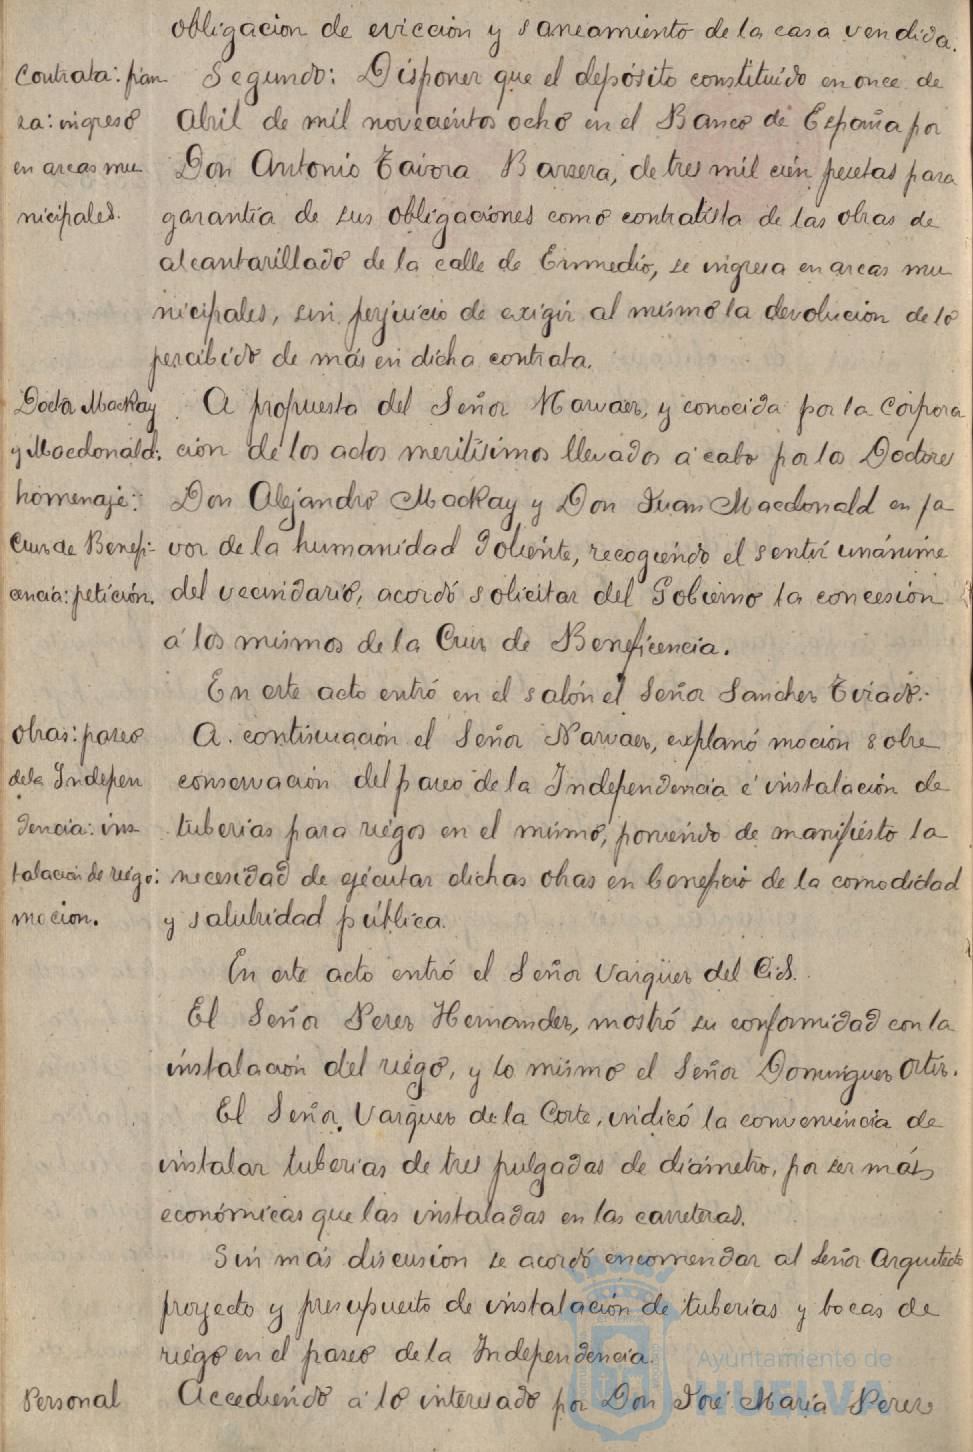 obligacion de evicción y saneamiento de la casa vendida.
Contrata: fian
za: ingreso
en arcas mu
nicipales.
Segundo: Disponer que el depósito constituido en once de
Abril de mil novecientos ocho en el Banco de España por
Don Antonio Tavora Barrera, de tres mil cien pesetas para
garantía de sus obligaciones como contratista de las obras de
alcantarillado de la calle de Enmedio, se ingresa en arcas mu
nicipales, sin perjuicio de exigir al mismo la devolucion de lo
percibido de más en dicha contrata.
Doctor Mackay
y Macdonald:
homenaje:
Cruz de Benefi-
cencia: petición.
A propuesta del Señor Narvaez, y conocida por la Corpora
ción de los actos meritísimos llevados á cabo por los Doctores
Don Alejandro Mackay y Don Juan Macdonald en fa
vor de la humanidad doliente, recogiendo el sentir unánime
del vecindario, acordó solicitar del Gobierno la concesion
á los mismos de la Cruz de Beneficencia.
En este acto entró en el salón el Señor Sanchez Tirado.
obras: paseo
de la Indepen
dencia: ins
talación de riego:
mocion.
A continuación el Señor Narvaez, explanó moción sobre
conservación del paseo de la Independencia é instalación de
tuberias para riegos en el mismo, poniendo de manifiesto la
necesidad de ejecutar dichas obras en beneficio de la comodidad
y salubridad pública.
En este acto entró el Señor Vazquez del Cid.
El Señor Perez Hernandez, mostró su conformidad con la
instalación del riego, y lo mismo el Señor Dominguez Ortiz.
El Señor Vazquez de la Corte, indicó la conveniencia de
instalar tuberias de tres pulgadas de diámetro, por ser más
económicas que las instaladas en las carreteras.
Sin más discusion se acordó encomendar al Señor Arquitecto
proyecto y presupuesto de instalación de tuberias y bocas de
riego en el paseo de la Independencia.
Personal
Accediendo á lo interesado por Don José María Perez
Ayuntamiento de
HUELVA